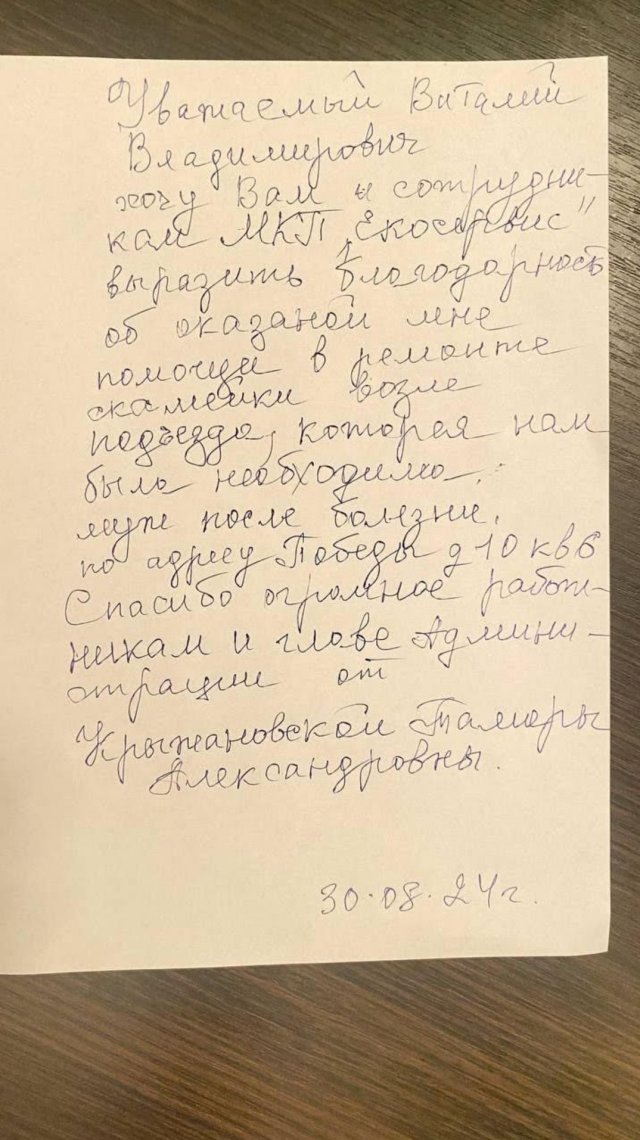 Уважаемый Виталий
Владимирович
хочу Вам и сотрудни-
кам МКП „Екосервис"
выразить благодарность
об оказаной мне
помощи в ремонте
скамейки возле
подъезда, которая нам
была необходима,
муж после болезни,
по адресу Победы д 10 кв 6
Спасибо огромное работ-
никам и главе Админи-
страции от
Крыжановской Тамары
Александровны.
30.08.24г.